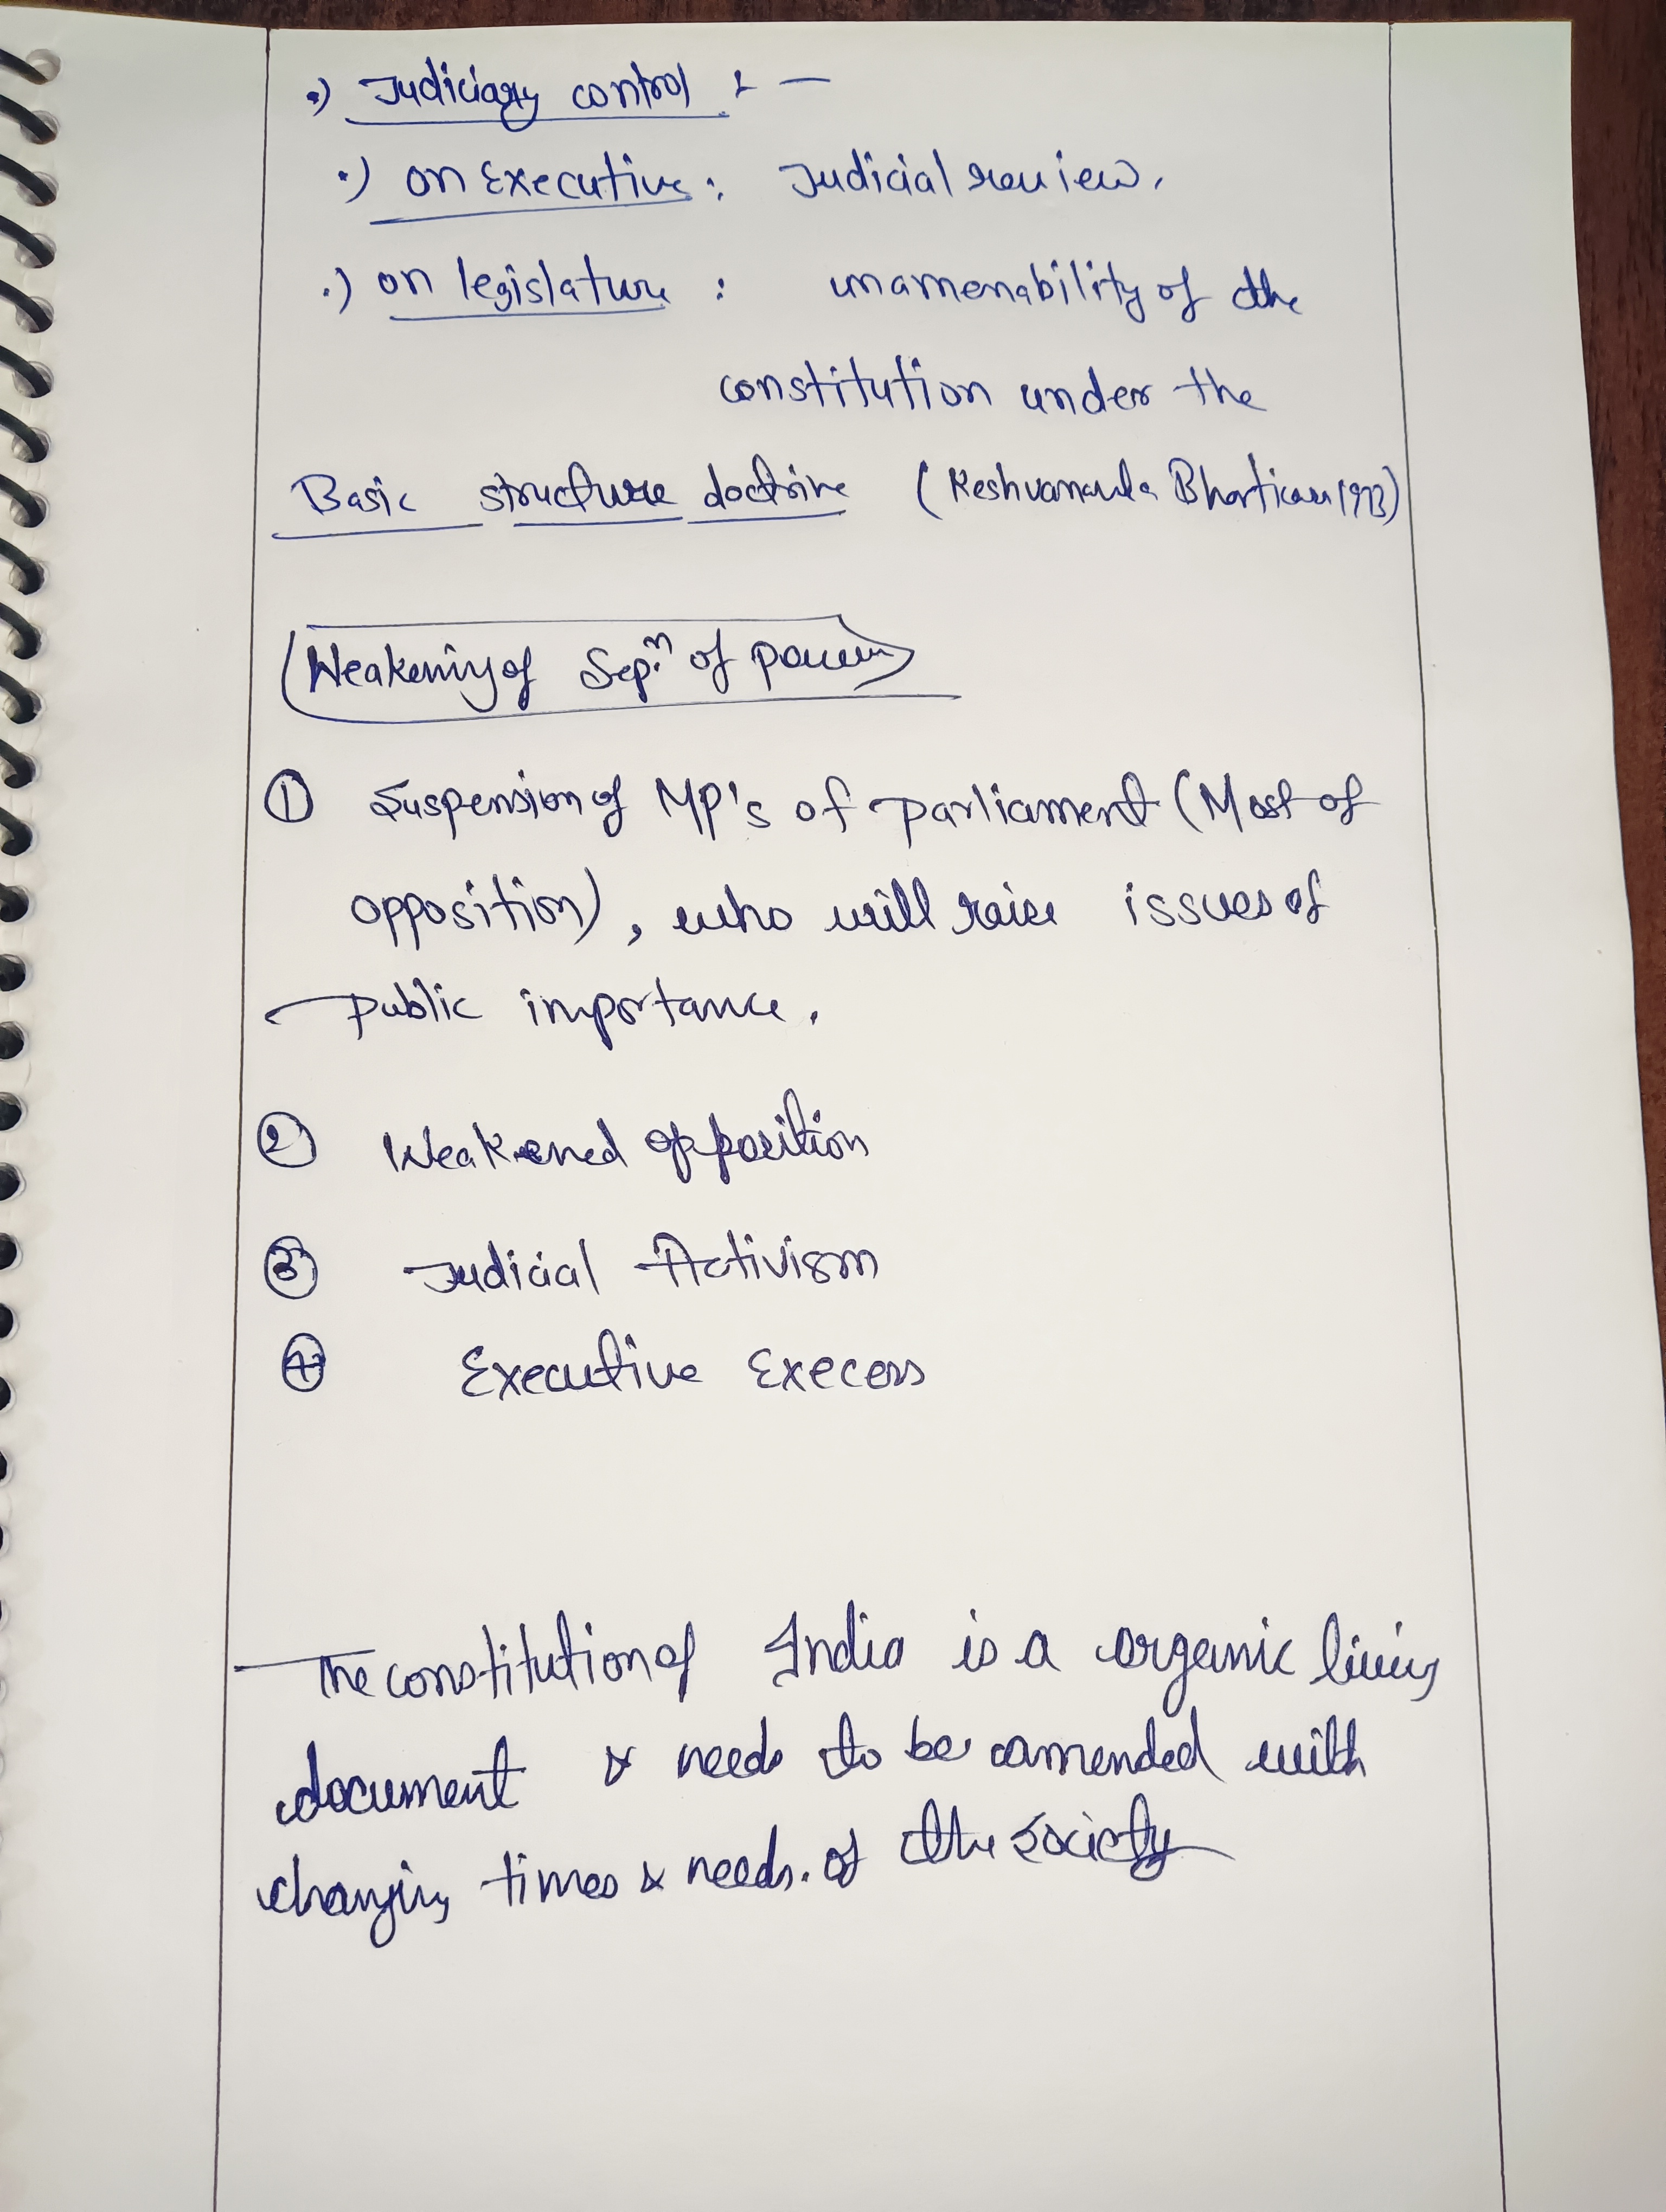 •) Judiciary control :-
•) on Executive : Judicial review.
•) on legislature : unamenability of the
constitution under the
Basic structure doctrine (Keshvananda Bharti case 1973)
Weakening of Sepⁿ of powers
① Suspension of MP's of parliament (Most of
opposition), who will raise issues of
public importance.
② Weakened opposition
③ Judicial Activism
④ Executive Execess
The constitution of India is a organic living
document & needs to be amended with
changing times & needs. of the society